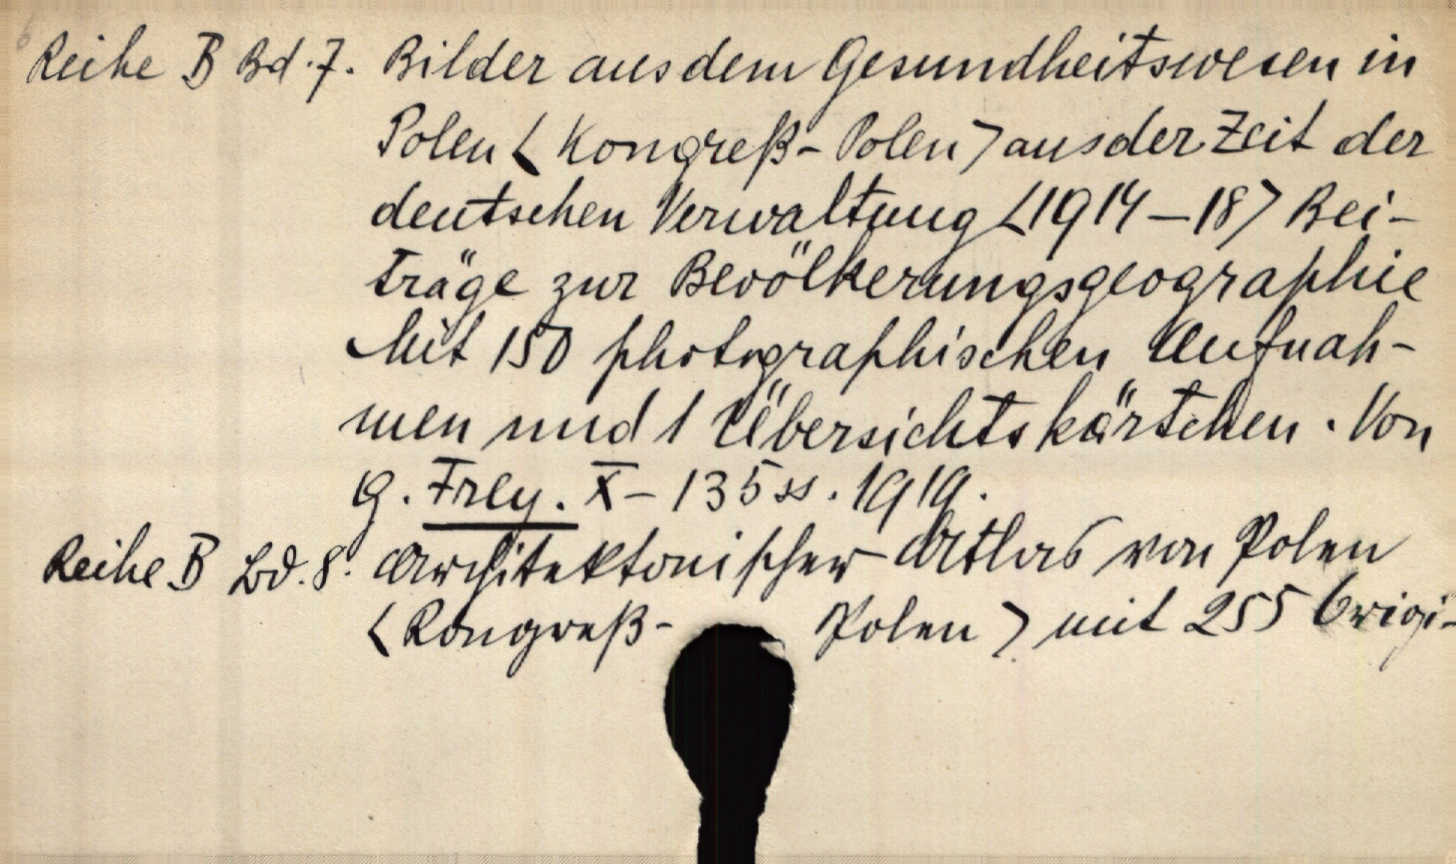 6
Reihe B Bd. 7. Bilder aus dem Gesundheitswesen in
Polen <Kongreß-Polen> aus der Zeit der
deutschen Verwaltung <1914-18> Bei-
träge zur Bevölkerungsgeographie
Mit 150 photographischen Aufnah-
men und 1 Übersichtskärtchen. Von
G. Frey. X-135 ss. 1919.
Reihe B Bd. 8. Architektonischer Atlas von Polen
<Kongreß- Polen> mit 255 Origi-